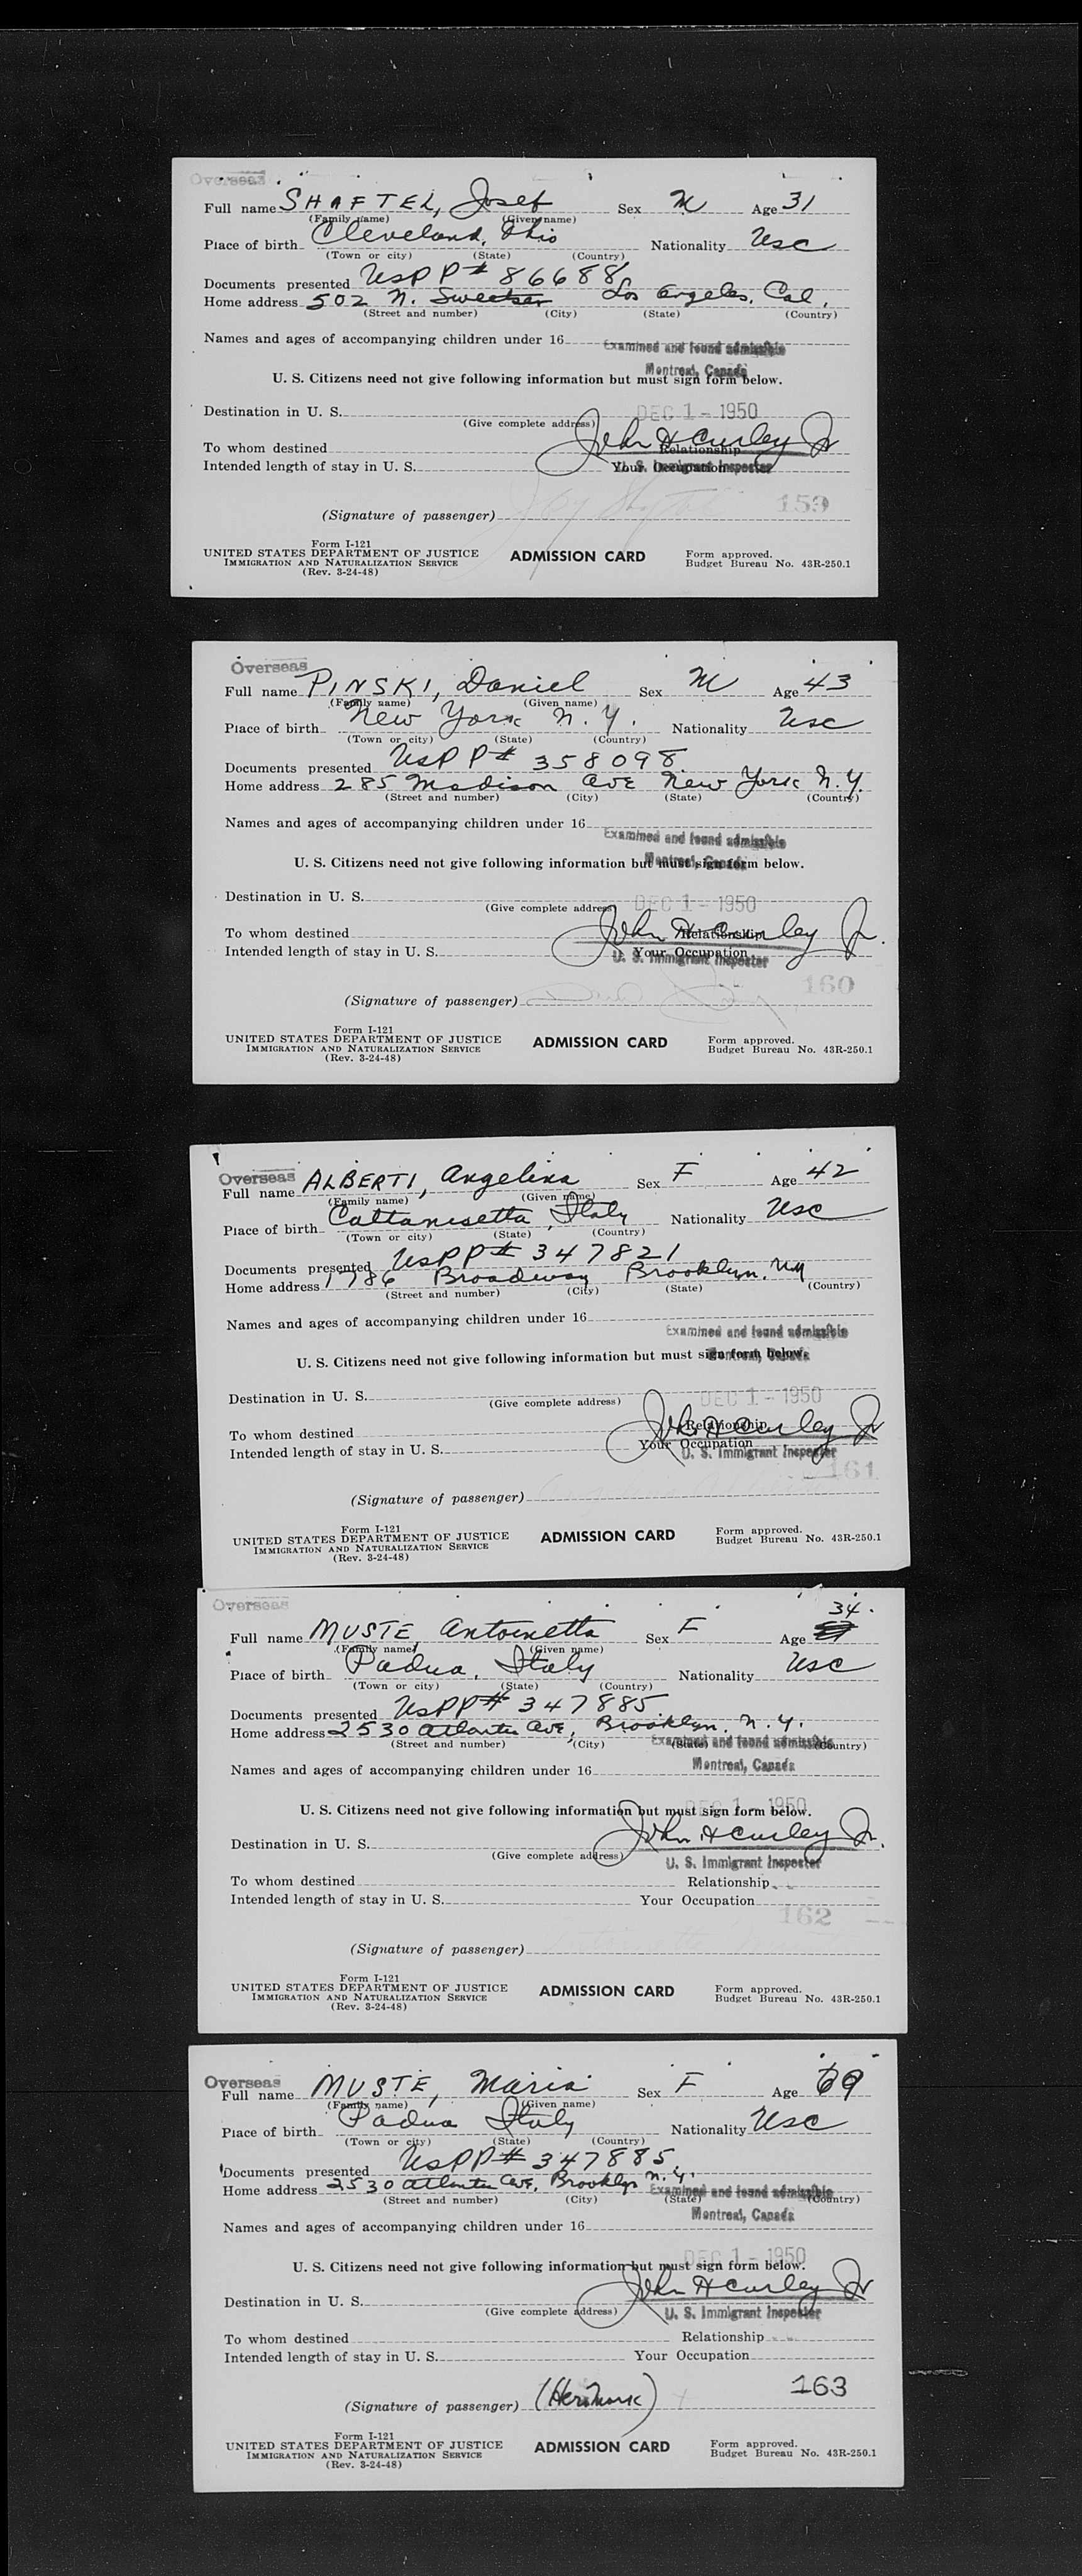 Overseas
Full name SHAFTEL, Josef Sex M Age 31
(Family name) (Given name)
Place of birth Cleveland, Ohio Nationality USC
(Town or city) (State) (Country)
Documents presented USPP# 86688
Home address 502 N. Sweetzer Los Angeles, Cal,
(Street and number) (City) (State) (Country)
Names and ages of accompanying children under 16
Examined and found admissible
Montreal, Canada
U. S. Citizens need not give following information but must sign form below.
Destination in U. S. DEC 1 - 1950
(Give complete address)
John H Curley Jr
To whom destined Relationship
Intended length of stay in U. S. Your Occupation
U. S. Immigrant Inspector
159
(Signature of passenger)
Form I-121
UNITED STATES DEPARTMENT OF JUSTICE ADMISSION CARD Form approved.
IMMIGRATION AND NATURALIZATION SERVICE Budget Bureau No. 43R-250.1
(Rev. 3-24-48)
Overseas
Full name PINSKI, Daniel Sex M Age 43
(Family name) (Given name)
Place of birth New York N. Y. Nationality USC
(Town or city) (State) (Country)
Documents presented USPP# 358098
Home address 285 Madison Ave New York N. Y.
(Street and number) (City) (State) (Country)
Names and ages of accompanying children under 16
Examined and found admissible
Montreal, Canada
U. S. Citizens need not give following information but must sign form below.
Destination in U. S. DEC 1 - 1950
(Give complete address)
John H Curley Jr.
To whom destined Relationship
Intended length of stay in U. S. Your Occupation
U. S. Immigrant Inspector
160
(Signature of passenger)
Form I-121
UNITED STATES DEPARTMENT OF JUSTICE ADMISSION CARD Form approved.
IMMIGRATION AND NATURALIZATION SERVICE Budget Bureau No. 43R-250.1
(Rev. 3-24-48)
Overseas
Full name ALBERTI, Angelina Sex F Age 42
(Family name) (Given name)
Place of birth Caltanisetta, Italy Nationality USC
(Town or city) (State) (Country)
Documents presented USPP# 347821
Home address 1786 Broadway Brooklyn, NY
(Street and number) (City) (State) (Country)
Names and ages of accompanying children under 16
Examined and found admissible
Montreal, Canada
U. S. Citizens need not give following information but must sign form below.
Destination in U. S. DEC 1 - 1950
(Give complete address)
John H Curley Jr
To whom destined Relationship
Intended length of stay in U. S. Your Occupation
U. S. Immigrant Inspector
161
(Signature of passenger)
Form I-121
UNITED STATES DEPARTMENT OF JUSTICE ADMISSION CARD Form approved.
IMMIGRATION AND NATURALIZATION SERVICE Budget Bureau No. 43R-250.1
(Rev. 3-24-48)
Overseas
34
Full name MUSTE, Antoinetta Sex F Age
(Family name) (Given name)
Place of birth Padua, Italy Nationality USC
(Town or city) (State) (Country)
Documents presented USPP# 347885
Home address 2530 Atlantic Ave, Brooklyn, N. Y.
(Street and number) (City) (State) (Country)
Examined and found admissible
Names and ages of accompanying children under 16 Montreal, Canada
DEC 1 1950
U. S. Citizens need not give following information but must sign form below.
John H Curley Jr.
Destination in U. S.
(Give complete address) U. S. Immigrant Inspector
To whom destined Relationship
Intended length of stay in U. S. Your Occupation
162
(Signature of passenger)
Form I-121
UNITED STATES DEPARTMENT OF JUSTICE ADMISSION CARD Form approved.
IMMIGRATION AND NATURALIZATION SERVICE Budget Bureau No. 43R-250.1
(Rev. 3-24-48)
Overseas
Full name MUSTE, Maria Sex F Age 69
(Family name) (Given name)
Place of birth Padua Italy Nationality USC
(Town or city) (State) (Country)
Documents presented USPP# 347885
Home address 2530 Atlantic Ave, Brooklyn N. Y.
(Street and number) (City) (State) (Country)
Examined and found admissible
Montreal, Canada
Names and ages of accompanying children under 16
DEC 1 - 1950
U. S. Citizens need not give following information but must sign form below.
John H Curley Jr
Destination in U. S.
(Give complete address) U. S. Immigrant Inspector
To whom destined Relationship
Intended length of stay in U. S. Your Occupation
163
(Signature of passenger) (Her Mark) X
Form I-121
UNITED STATES DEPARTMENT OF JUSTICE ADMISSION CARD Form approved.
IMMIGRATION AND NATURALIZATION SERVICE Budget Bureau No. 43R-250.1
(Rev. 3-24-48)